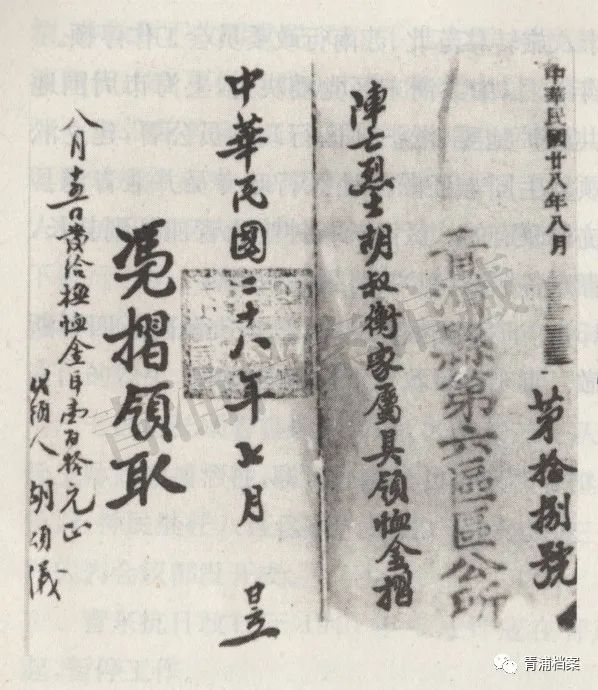 中華民國廿八年八月
第拾捌號
青浦縣第六區區公所
陣亡烈士胡叔衡家屬具領恤金摺
中華民國二十八年七月 日立
憑摺領取
八月
日發給撫恤金洋壹百拾元正
代領人胡頌儀
青浦档案